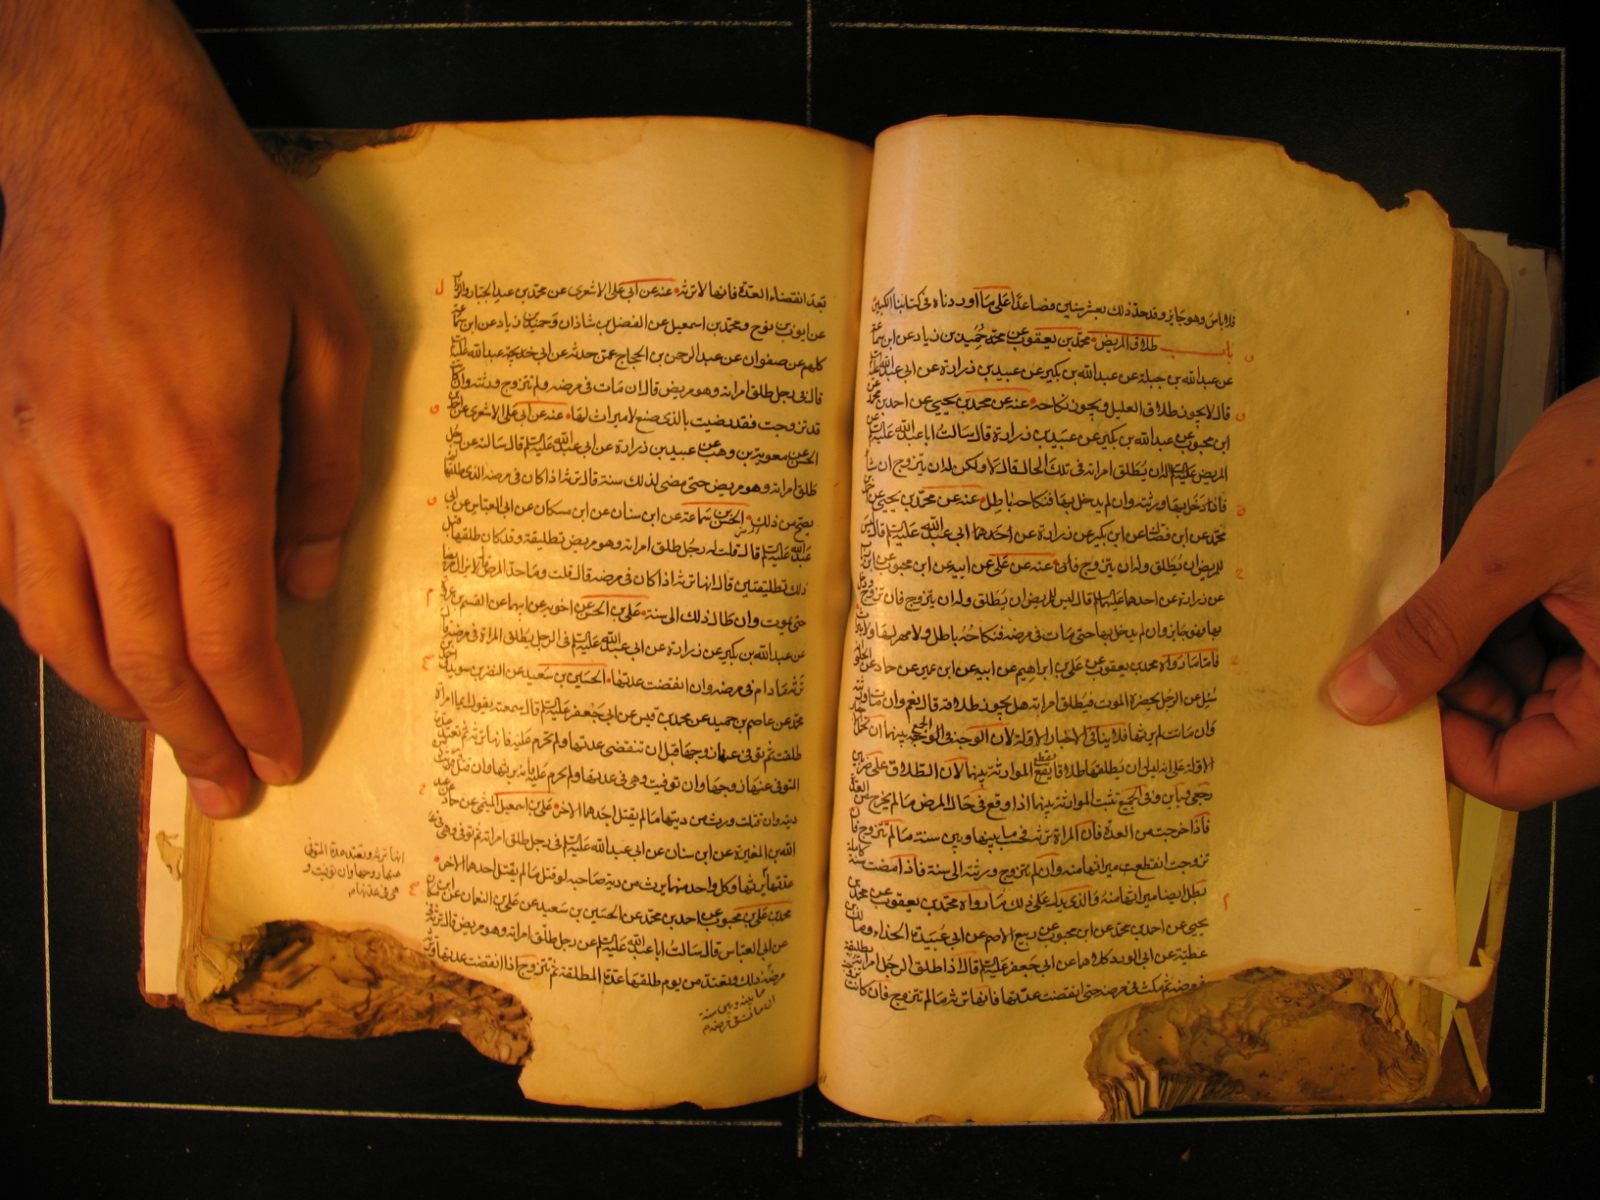 فلا باس وهو جايز وقد حد ذلك بعشر سنين فصاعدا على ما اوردناه في كتابنا الكبير
باب طلاق المريض محمد بن يعقوب عن حميد بن زياد عن ابن سماعة
عن عبد الله بن جبلة عن عبد الله بن بكير عن عبيد بن زرارة عن ابي عبد الله عليه
قال لا يجوز طلاق العليل ويجوز نكاحه عنه عن محمد بن يحيى عن احمد بن محمد عن
ابن محبوب عن عبد الله بن بكير عن عبيد بن زرارة قال سالت ابا عبد الله عليه السلم عن
المريض اله ان يطلق امراته في تلك الحال قال لا ولكن له ان يتزوج ان شا
فان دخل بها ورثته وان لم يدخل بها فنكاحه باطل عنه عن محمد بن يحيى عن احمد بن
محمد عن ابن فضال عن ابن بكير عن زرارة عن احدهما ابي عبد الله عليه السلم قال ليس
للمريض ان يطلق وله ان يتزوج فان عنه عن علي عن ابيه عن ابن محبوب عن
عن زرارة عن احدهما عليهما السلم قال ليس للمريض ان يطلق وله ان يتزوج فان تزوج ودخل
بها فهو جايز وان لم يدخل بها حتى مات في مرضه فنكاحه باطل ولا مهر لها ولا ميراث
فاما ما رواه محمد بن يعقوب عن علي بن ابراهيم عن ابيه عن ابن ابي عمير عن حماد عن الحلبي
سئل عن الرجل يحضره الموت فيطلق امراته هل يجوز طلاقه قال نعم وان مات ورثته
وان ماتت لم يرثها فلا ينافي الاخبار الاولة لان الوجه في الجمع بينها ان نحمل الاخبار
الاولة على انه ليس له ان يطلقها طلاقا يقطع الموارثة بينهما لان الطلاق على ضربين
رجعي وباين وفي الجميع تثبت الموارثة بينهما اذا وقع في حال المرض ما لم يخرج من العدة
فاذا خرجت من العدة فان المراة ترثه فيما بينها وبين سنة ما لم تتزوج فان
تزوجت انقطعت ميراثها منه وان لم تتزوج ورثته الى سنة فاذا مضت سنة كاملة
بطل ايضا ميراثها منه والذي يدل على ذلك ما رواه محمد بن يعقوب عن محمد بن
يحيى عن احمد بن محمد عن ابن محبوب عن ربيع الاصم عن ابي عبيدة الحذاء ومالك بن
عطية عن ابي الورد كلاهما عن ابي جعفر عليه السلم قال اذا طلق الرجل امراته تطليقة
في مرضه ثم مكث في مرضه حتى انقضت عدتها فانها ترثه ما لم تتزوج فان كانت تزوجت
بعد انقضاء العدة فانها لا ترثه عنه عن ابي علي الاشعري عن محمد بن عبد الجبار والرزاز
عن ايوب بن نوح ومحمد بن اسمعيل عن الفضل بن شاذان وحميد بن زياد عن ابن سماعة
كلهم عن صفوان عن عبد الرحمن بن الحجاج عمن حدثه عن ابي عبد الله عليه
قال في رجل طلق امراته وهو مريض قال ان مات في مرضه ولم تتزوج ورثته وان كانت
قد تزوجت فقد رضيت بالذي صنع لا ميراث لها عنه عن ابي علي الاشعري عن احمد بن
الحسن عن معوية بن وهب عن عبيد بن زرارة عن ابي عبد الله عليه السلم قال سالته عن رجل
طلق امراته وهو مريض حتى مضى لذلك سنة قال ترثه اذا كان في مرضه الذي طلقها
يصح من ذلك الحسين بن سماعة عن ابن سنان عن ابن مسكان عن ابي العباس عن ابي
عبد الله عليه السلم قال قلت له رجل طلق امراته وهو مريض تطليقة وقد كان طلقها قبل
ذلك تطليقتين قال انها ترثه اذا كان في مرضه قال قلت وما حد المرض قال لا يزال مريضا
حتى يموت وان طال ذلك الى سنة علي بن الحسن عن اخويه عن ابيهما عن القسم بن عروة
عن عبد الله بن بكير عن زرارة عن ابي عبد الله عليه السلم في الرجل يطلق المراة في مرضه
ترثه ما دام في مرضه وان انقضت عدتها الحسين بن سعيد عن النضر بن سويد
محمد عن عاصم بن حميد عن محمد بن قيس عن ابي جعفر عليه السلم قال سمعته يقول ايما امراة
طلقت ثم توفي عنها زوجها قبل ان تنقضي عدتها ولم تحرم عليه فانها ترثه ثم تعتد عدة
المتوفى عنها زوجها وان توفيت وهي في عدتها ولم تحرم عليه فانه يرثها وان قتل ورثت من
ديته وان قتلت ورث من ديتها ما لم يقتل احدهما الاخر علي بن اسمعيل الميثمي عن حماد عن عبد
الله بن المغيرة عن ابن سنان عن ابي عبد الله عليه السلم في رجل طلق امراته ثم توفي وهي في
عدتها يرثها وكل واحد منهما يرث من دية صاحبه لو قتل ما لم يقتل احدهما الاخر
محمد بن علي بن محبوب عن احمد بن محمد عن الحسين بن سعيد عن علي بن النعمان عن ابن مسكان
عن ابي العباس قال سالت ابا عبد الله عليه السلم عن رجل طلق امراته وهو مريض قال ترثه في
مرضه ذلك وتعتد من يوم طلقها عدة المطلقة ثم تتزوج اذا انقضت عدتها وترثه
ما بينه وبين سنة
ان مات في مرضه
انها ترثه وتعتد عدة المتوفى
عنها زوجها وان توفيت و
هي في عدتها